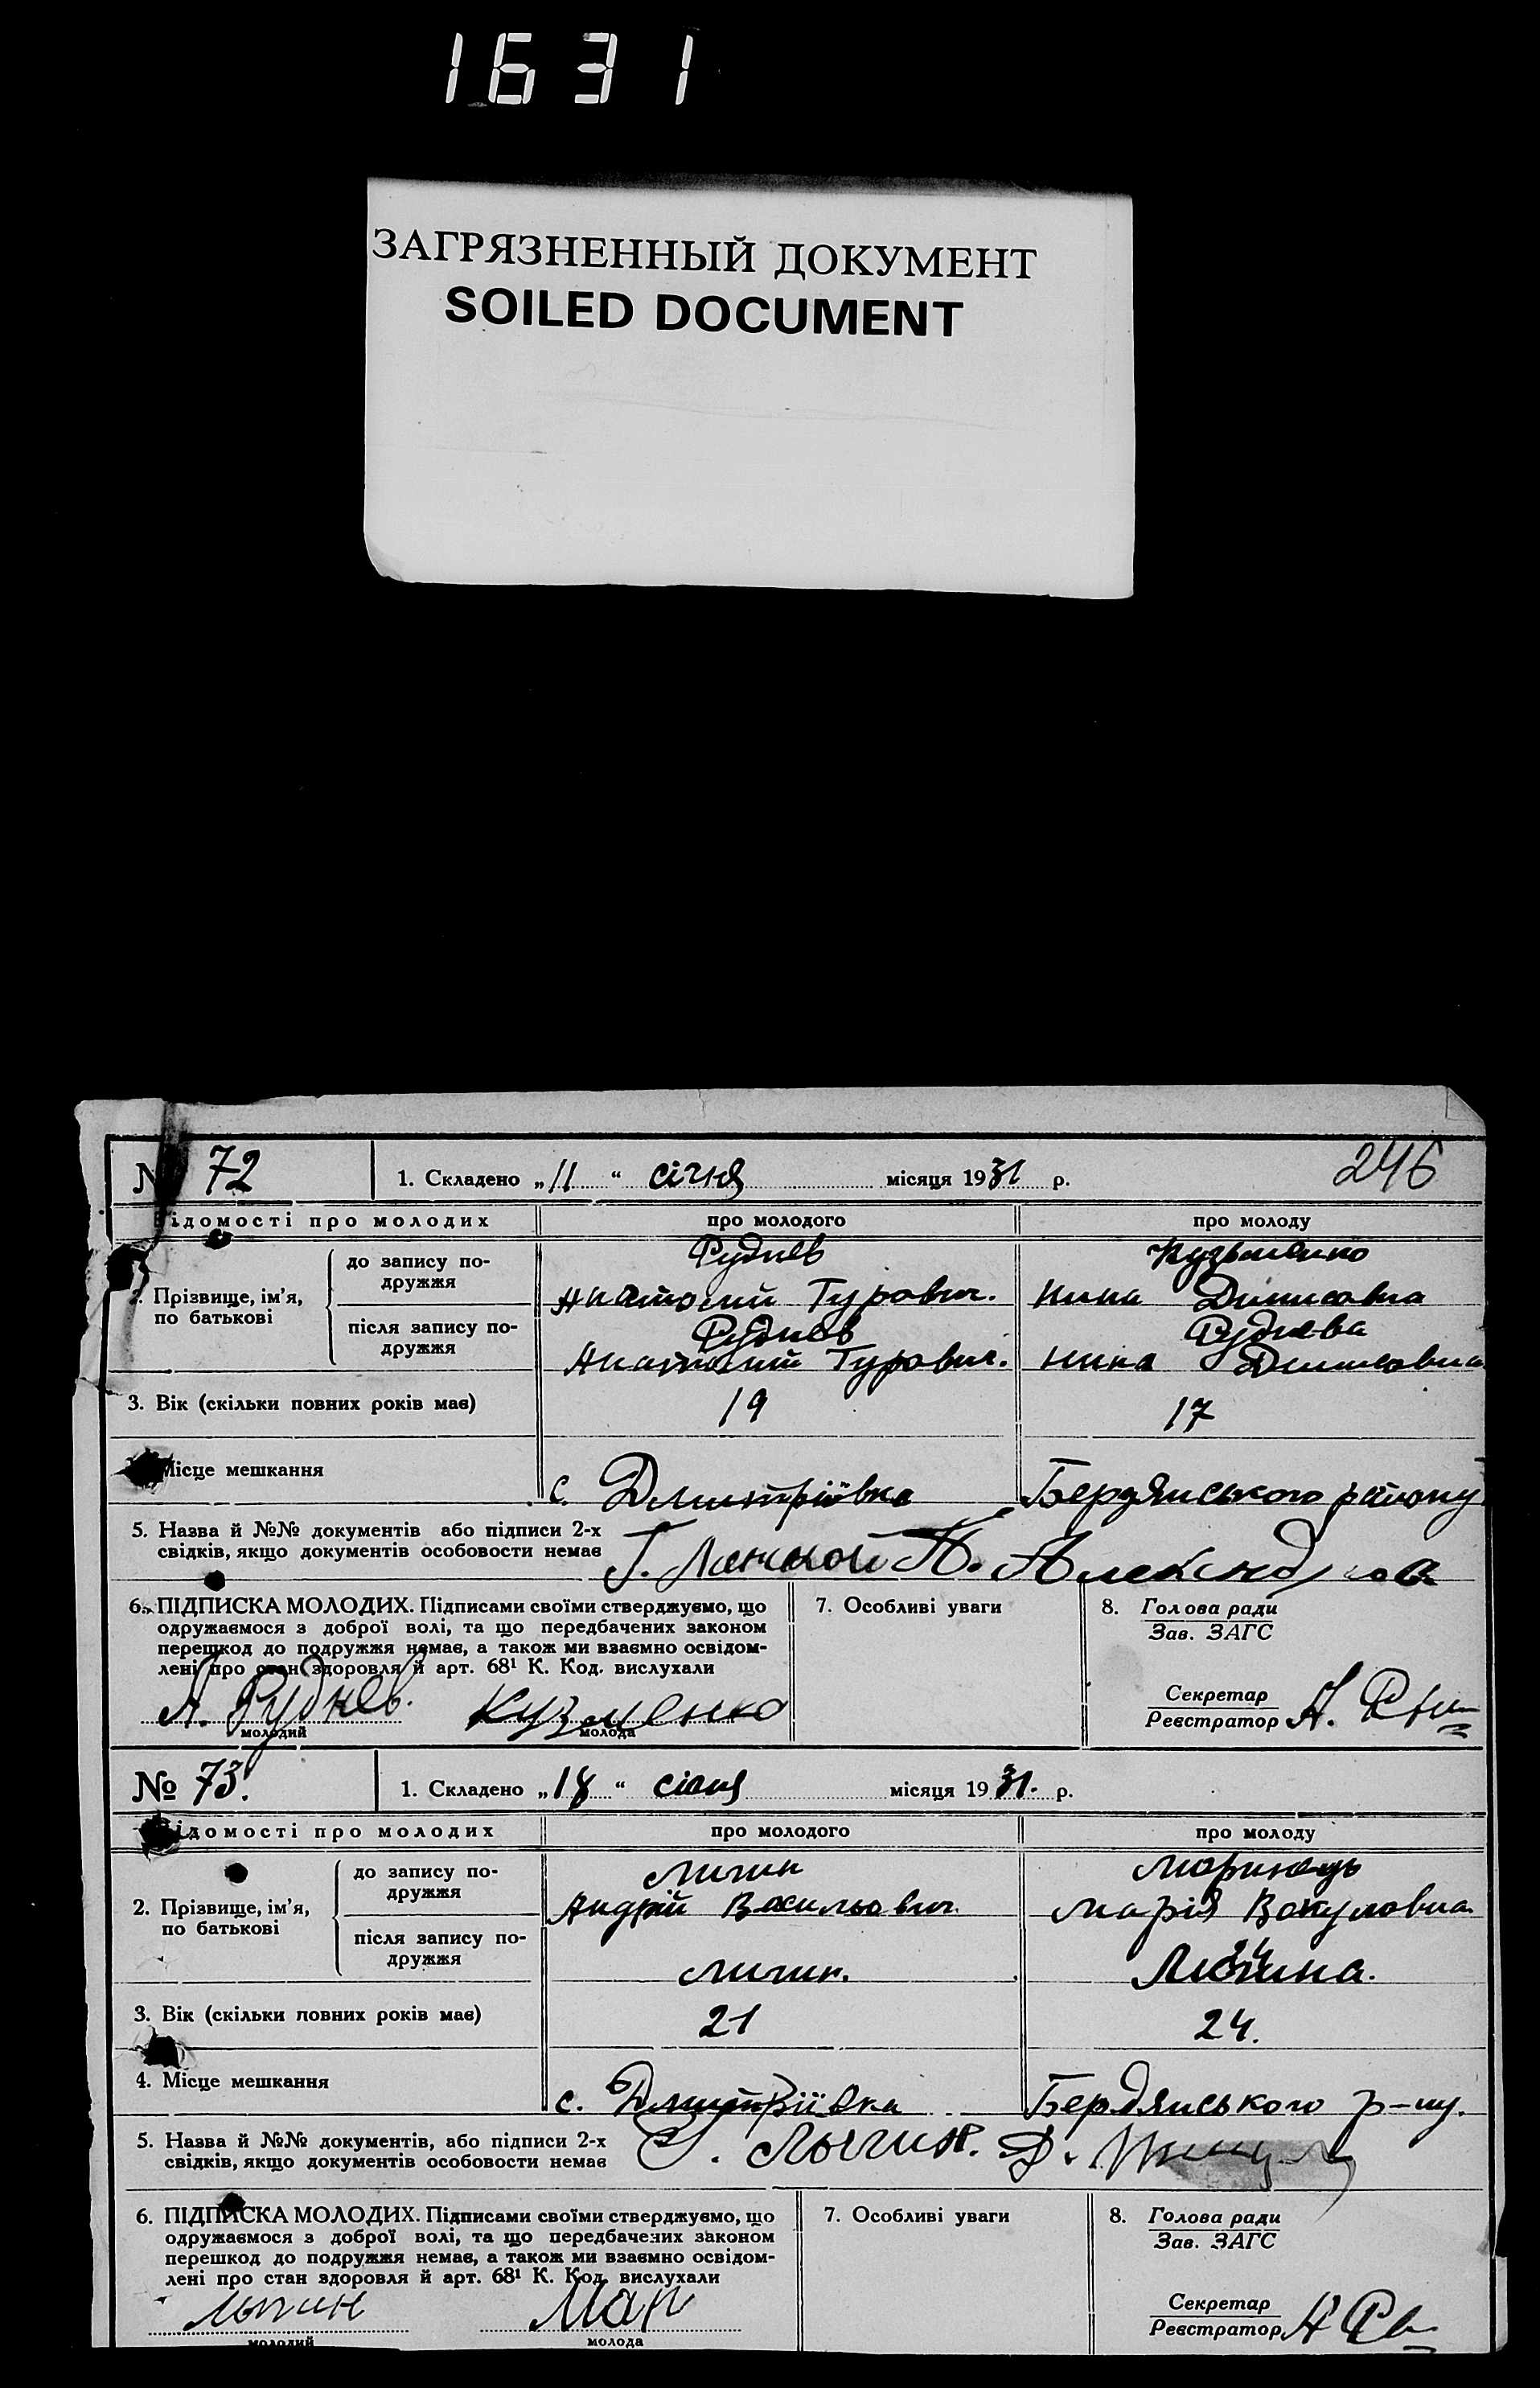 1631
ЗАГРЯЗНЕННЫЙ ДОКУМЕНТ
SOILED DOCUMENT
246
№ 72
1. Складено „11“ січня місяця 1931 р.
Відомості про молодих
про молодого
про молоду
2. Прізвище, ім’я, по батькові
до запису по-
дружжя
Руднєв
Анатолій Гурович.
Кузьменко
Нина Денисовна
після запису по-
дружжя
Руднєв
Анатолій Гурович.
Руднєва
Нина Денисовна
3. Вік (скільки повних років має)
19
17
Місце мешкання
с. Дмитріївка
Бердянського району
5. Назва й №№ документів або підписи 2-х
свідків, якщо документів особовости немає
6. ПІДПИСКА МОЛОДИХ. Підписами своїми стверджуємо, що
одружаємося з доброї волі, та що передбачених законом
перешкод до подружжя немає, а також ми взаємно освідом-
лені про стан здоровля й арт. 68¹ К. Код. вислухали
А. Руднев.
Кузменко
молодий
молода
7. Особливі уваги
8. Голова ради
Зав. ЗАГС
Секретар
Реєстратор
№ 73.
1. Складено „18“ січня місяця 1931. р.
Відомості про молодих
про молодого
про молоду
2. Прізвище, ім’я,
по батькові
до запису по-
дружжя
Личин
Андрій Васильович.
Маринець
Марія Вакуловна
після запису по-
дружжя
Личин.
3. Вік (скільки повних років має)
21
24.
4. Місце мешкання
с. Дмитріївка
Бердянського р-ну.
5. Назва й №№ документів, або підписи 2-х
свідків, якщо документів особовости немає
6. ПІДПИСКА МОЛОДИХ. Підписами своїми стверджуємо, що
одружаємося з доброї волі, та що передбачених законом
перешкод до подружжя немає, а також ми взаємно освідом-
лені про стан здоровля й арт. 68¹ К. Код. вислухали
молодий
молода
7. Особливі уваги
8. Голова ради
Зав. ЗАГС
Секретар
Реєстратор